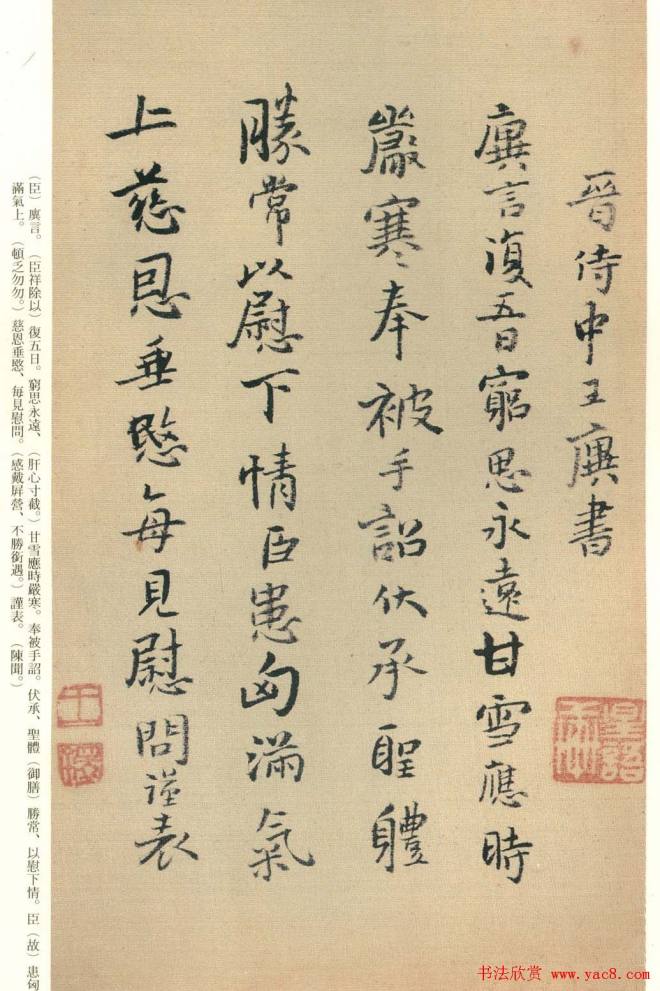 晉侍中王廙書
廙言復五日窮思永遠甘雪應時
嚴寒奉被手詔伏承聖體
勝常以慰下情臣患匈滿氣
上慈恩垂愍每見慰問謹表
(臣)廙言。(臣祥除以)復五日。窮思永遠、(肝心寸截。)甘雪應時嚴寒。奉被手詔。伏承、聖體(御膳)勝常、以慰下情。臣(故)患匈
滿氣上。(頓乏勿勿。)慈恩垂愍、每見慰問。(感戴屏營、不勝銜遇。)謹表。(陳聞。)
书法欣赏 www.yac8.com